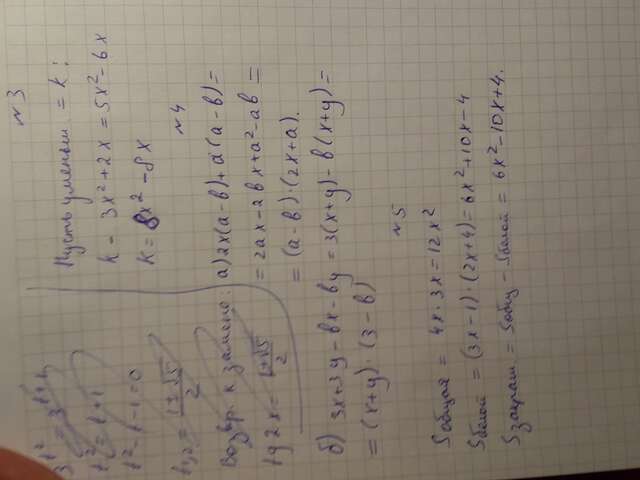 3^t² = 3^t+1
t² = t+1
t²-t-1=0
t₁,₂ = (1±√5)/2
Возвр. к замене:
tg2x = (1±√5)/2
№3
Пусть уменьш = k:
k - 3x²+2x = 5x²-6x
k = 8x²-8x
№4
а) 2x(a-b)+a(a-b)=
= 2ax-2bx+a²-ab =
= (a-b)·(2x+a).
б) 3x+3y-bx-by = 3(x+y)-b(x+y)=
= (x+y)·(3-b)
№5
Sобщая = 4x·3x=12x²
Sбелой = (3x-1)·(2x+4)=6x²+10x-4
Sзакраш = Sобщ - Sбелой = 6x²-10x+4.